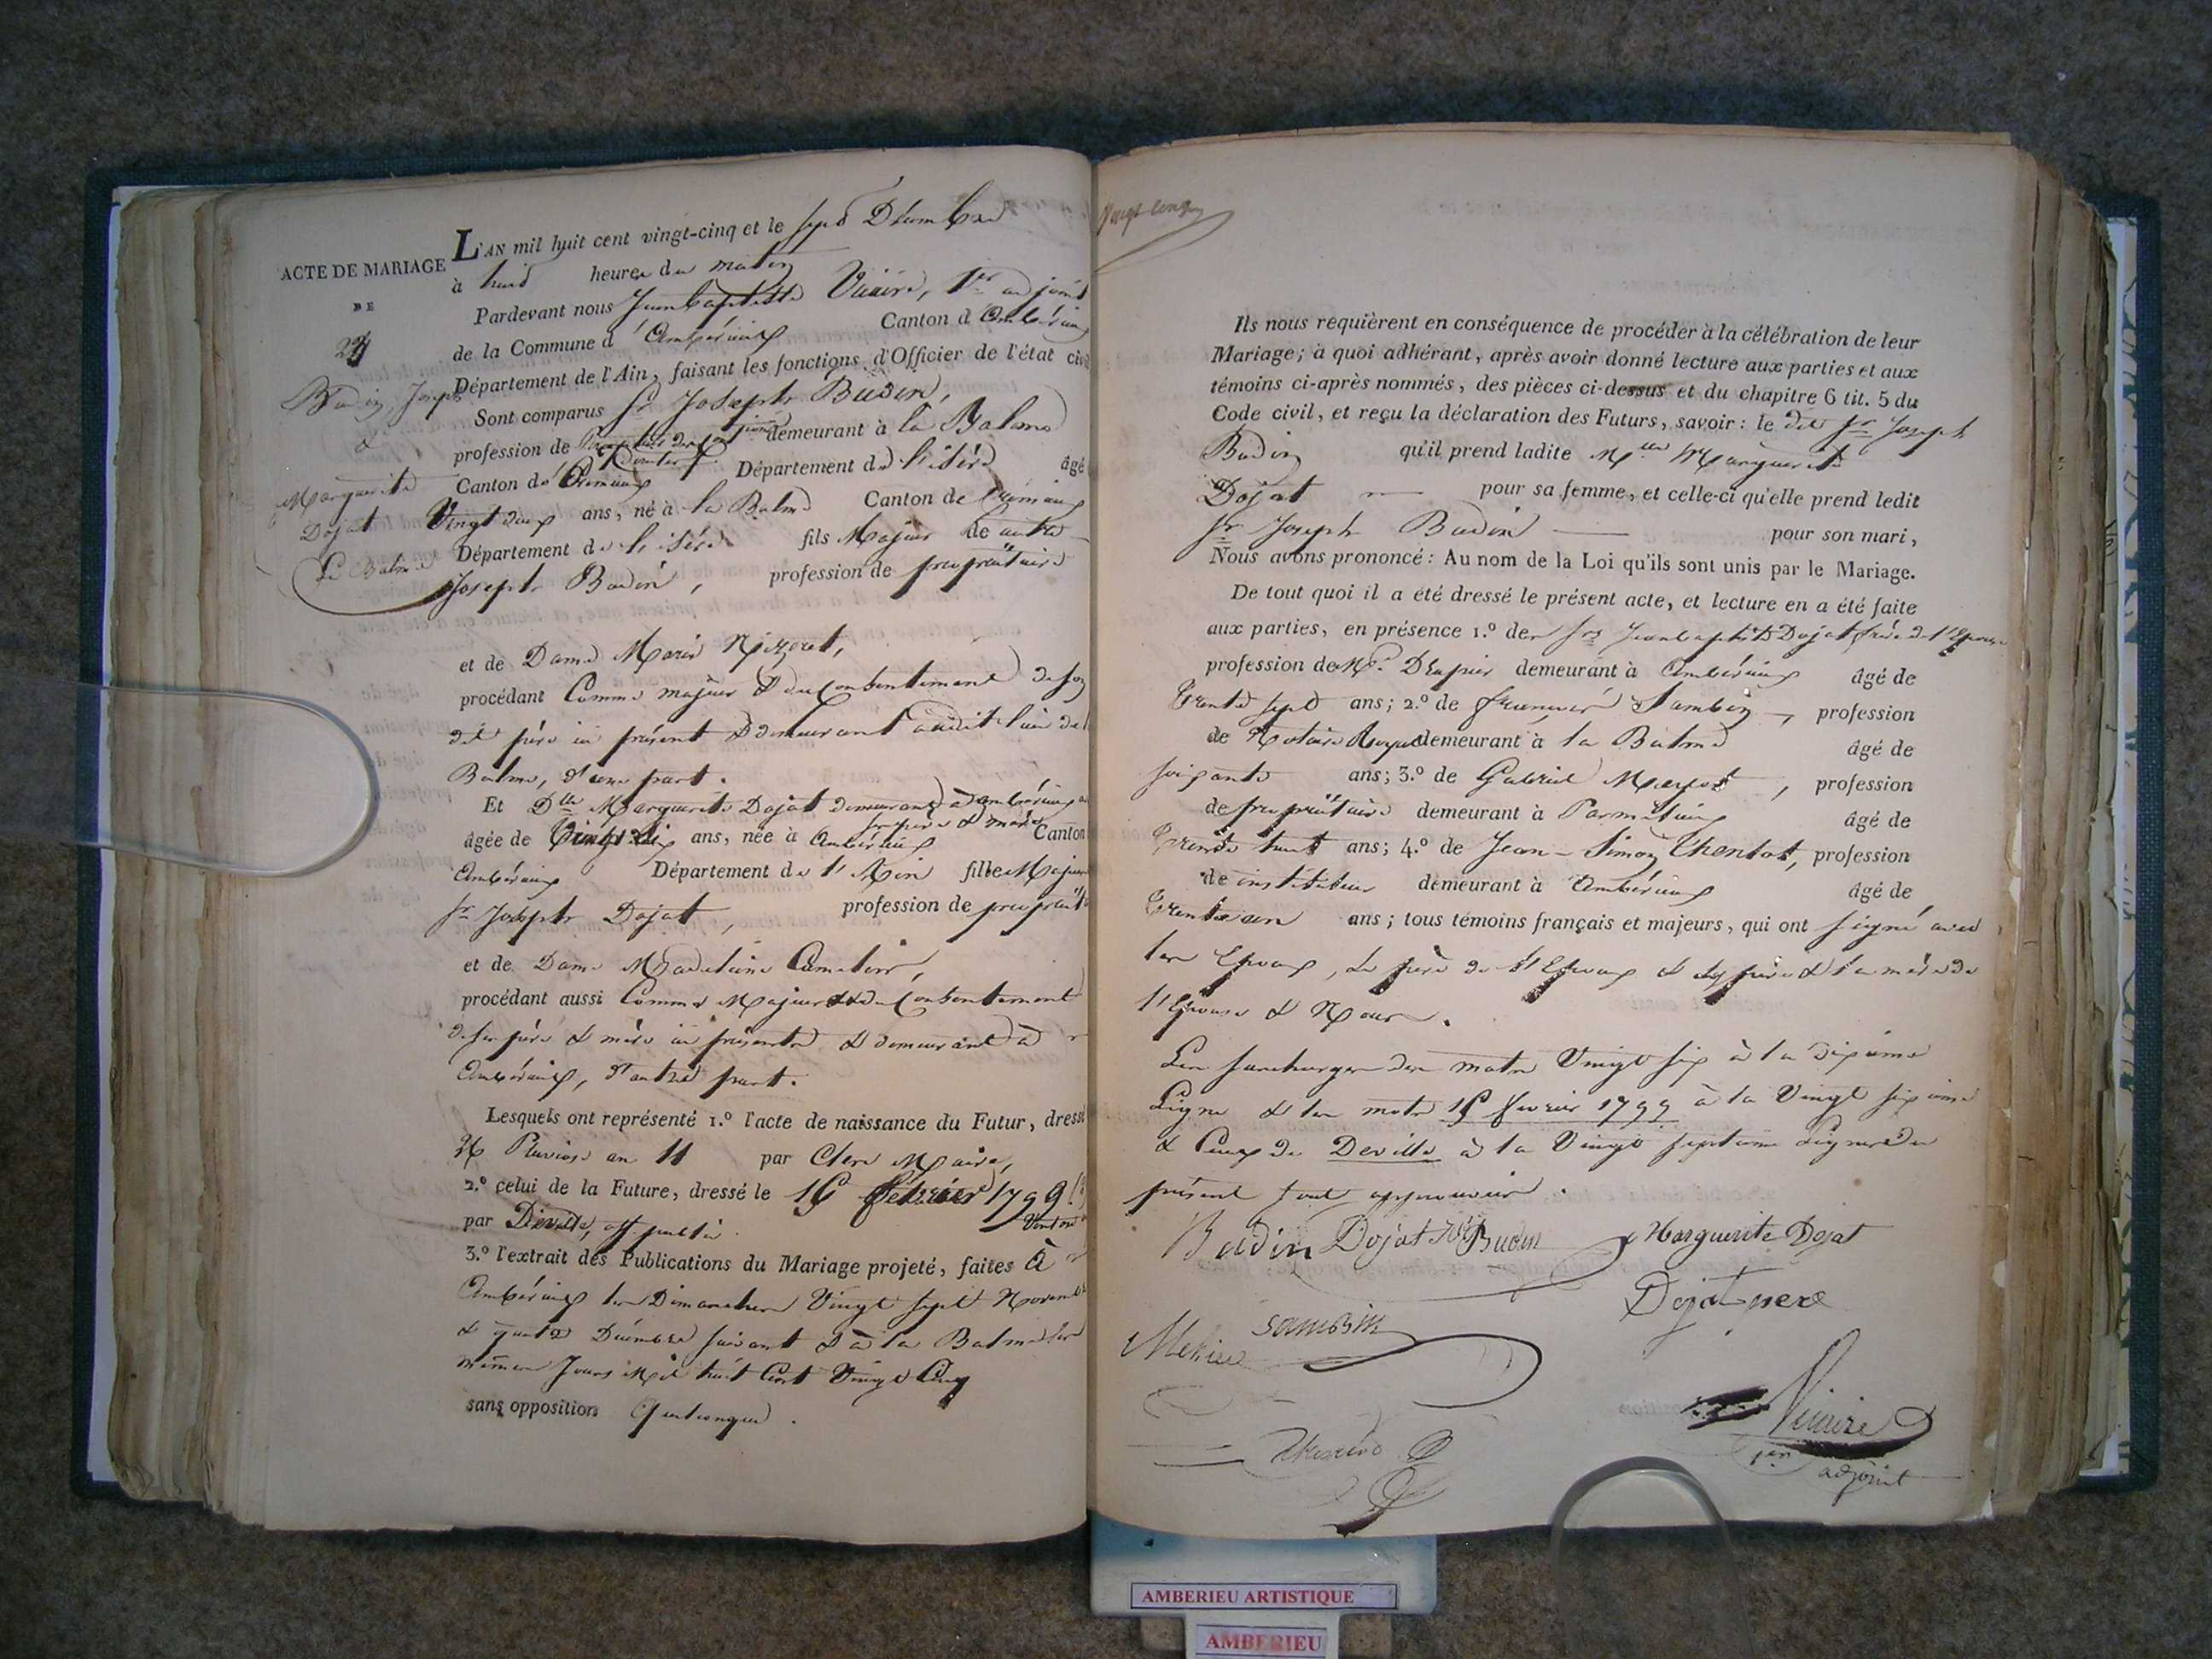 ACTE DE MARIAGE
DE
24
Budin, Joseph
&
Marguerite
Dojat
La Balme
L'AN mil huit cent vingt-cinq et le sept Décembre
à huit heures du matin
Pardevant nous Jean baptiste Vicaire, 1er adjoint
de la Commune d'Ambérieux Canton d'Ambérieux
Département de l'Ain, faisant les fonctions d'Officier de l'état civil
Sont comparus Sr Joseph Budin,
profession de demeurant à la Balme
Canton de Crémieux Département de l'isère âgé
Vingt deux ans, né à la Balme Canton de Crémieux
Département de l'isère fils Majeur de autre
Joseph Budin, profession de propriétaire
et de Dame Marie Nizeret,
procédant Comme majeur & du Consentement de son
dit père ici présent & demeurant audit lieu de la
Balme, d'une part.
Et Dlle Marguerite Dojat demeurant à Ambérieux
ses père & mère
âgée de Vingt six ans, née à Ambérieux Canton
Ambérieux Département de l'Ain fille Majeure
Sr Joseph Dojat, profession de propriét
et de Dame Madelaine
procédant aussi Comme Majeure & du Consentement
de ses père & mère ici présents & demeurant à
Ambérieux, d'autre part.
Lesquels ont représenté 1.º l'acte de naissance du Futur, dressé
Pluviose an 11 par Clerc Maire,
2.º celui de la Future, dressé le 16 février 1799
par Deville, off public
3.º l'extrait des Publications du Mariage projeté, faites à
Ambérieux les Dimanches Vingt sept Novembre
& quatre Décembre suivant & à la Balme les
mêmes Jours Mil huit Cent Vingt Cinq
sans opposition Quelconque.
Ils nous requièrent en conséquence de procéder à la célébration de leur
Mariage; à quoi adhérant, après avoir donné lecture aux parties et aux
témoins ci-après nommés, des pièces ci-dessus et du chapitre 6 tit. 5 du
Code civil, et reçu la déclaration des Futurs, savoir: le dit Sr Joseph
Budin qu'il prend ladite Mlle Marguerite
Dojat pour sa femme, et celle-ci qu'elle prend ledit
Sr Joseph Budin pour son mari,
Nous avons prononcé: Au nom de la Loi qu'ils sont unis par le Mariage.
De tout quoi il a été dressé le présent acte, et lecture en a été faite
aux parties, en présence 1.º de Srs Jean baptiste Dojat frère de l'Epouse
profession de Md Drapier demeurant à Ambérieux âgé de
Trente sept ans; 2.º de Sambin, profession
de Notaire Royal demeurant à la Balme âgé de
soixante ans; 3.º de Gabriel, profession
de propriétaire demeurant à Parmilieux âgé de
Trente huit ans; 4.º de Jean-Simon, profession
de instituteur demeurant à Ambérieux âgé de
Trente un ans; tous témoins français et majeurs, qui ont signé avec
les Epoux, le père de l'Epoux & les père & la mère de
l'Epouse & Nous.
Les surcharges des mots Vingt six à la dixième
Ligne & les mots 16 février 1799 à la Vingt sixième
& Ceux de Deville à la Vingt septième Lignes du
présent sont approuvées.
Budin Dojat Budin Marguerite Dojat
Dojat pere
sambin
Vicaire
1er adjoint
AMBERIEU ARTISTIQUE
AMBERIEU